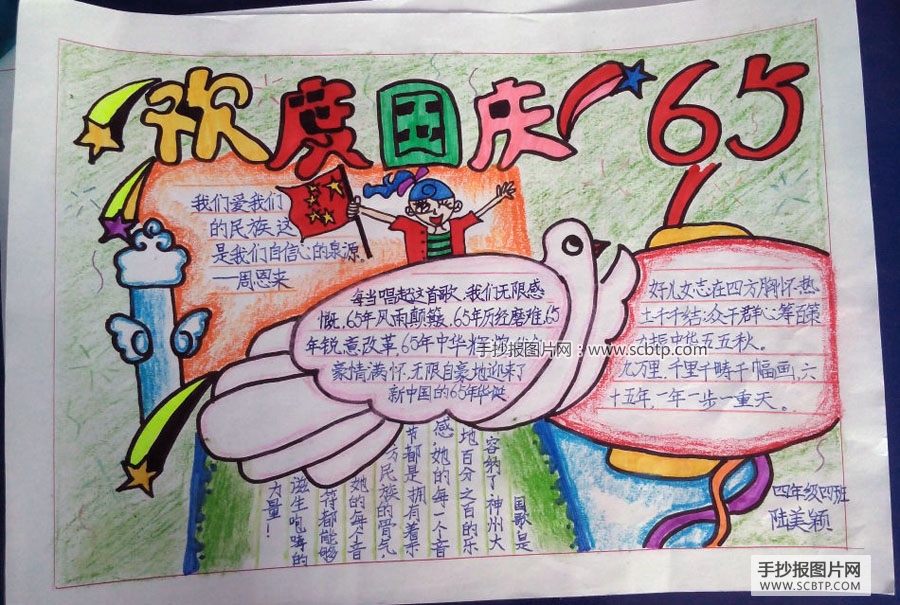 欢度国庆65
我们爱我们
的民族,这
是我们自信心的泉源.
—周恩来
每当唱起这首歌,我们无限感
慨,65年风雨颠簸,65年历经磨难,65
年锐意改革,65年中华辉煌
豪情满怀,无限自豪地迎来了
新中国的65年华诞
手抄报图片网:www.scbtp.com
好儿女志在四方胸怀.热
土千千结:众干群心筹百策
中华五五秋。
九万里,千里千畴千幅画,六
十五年,一年一步一重天。
国歌是
容豹了神州大
地百分之百的乐
感,她的每一个音
节都是拥有着
万民族的骨气
她的每个音
符都能够
滋生咆哮的
力量!
四年级四班
陆美颖
手抄报图片网
WWW.SCBTP.COM